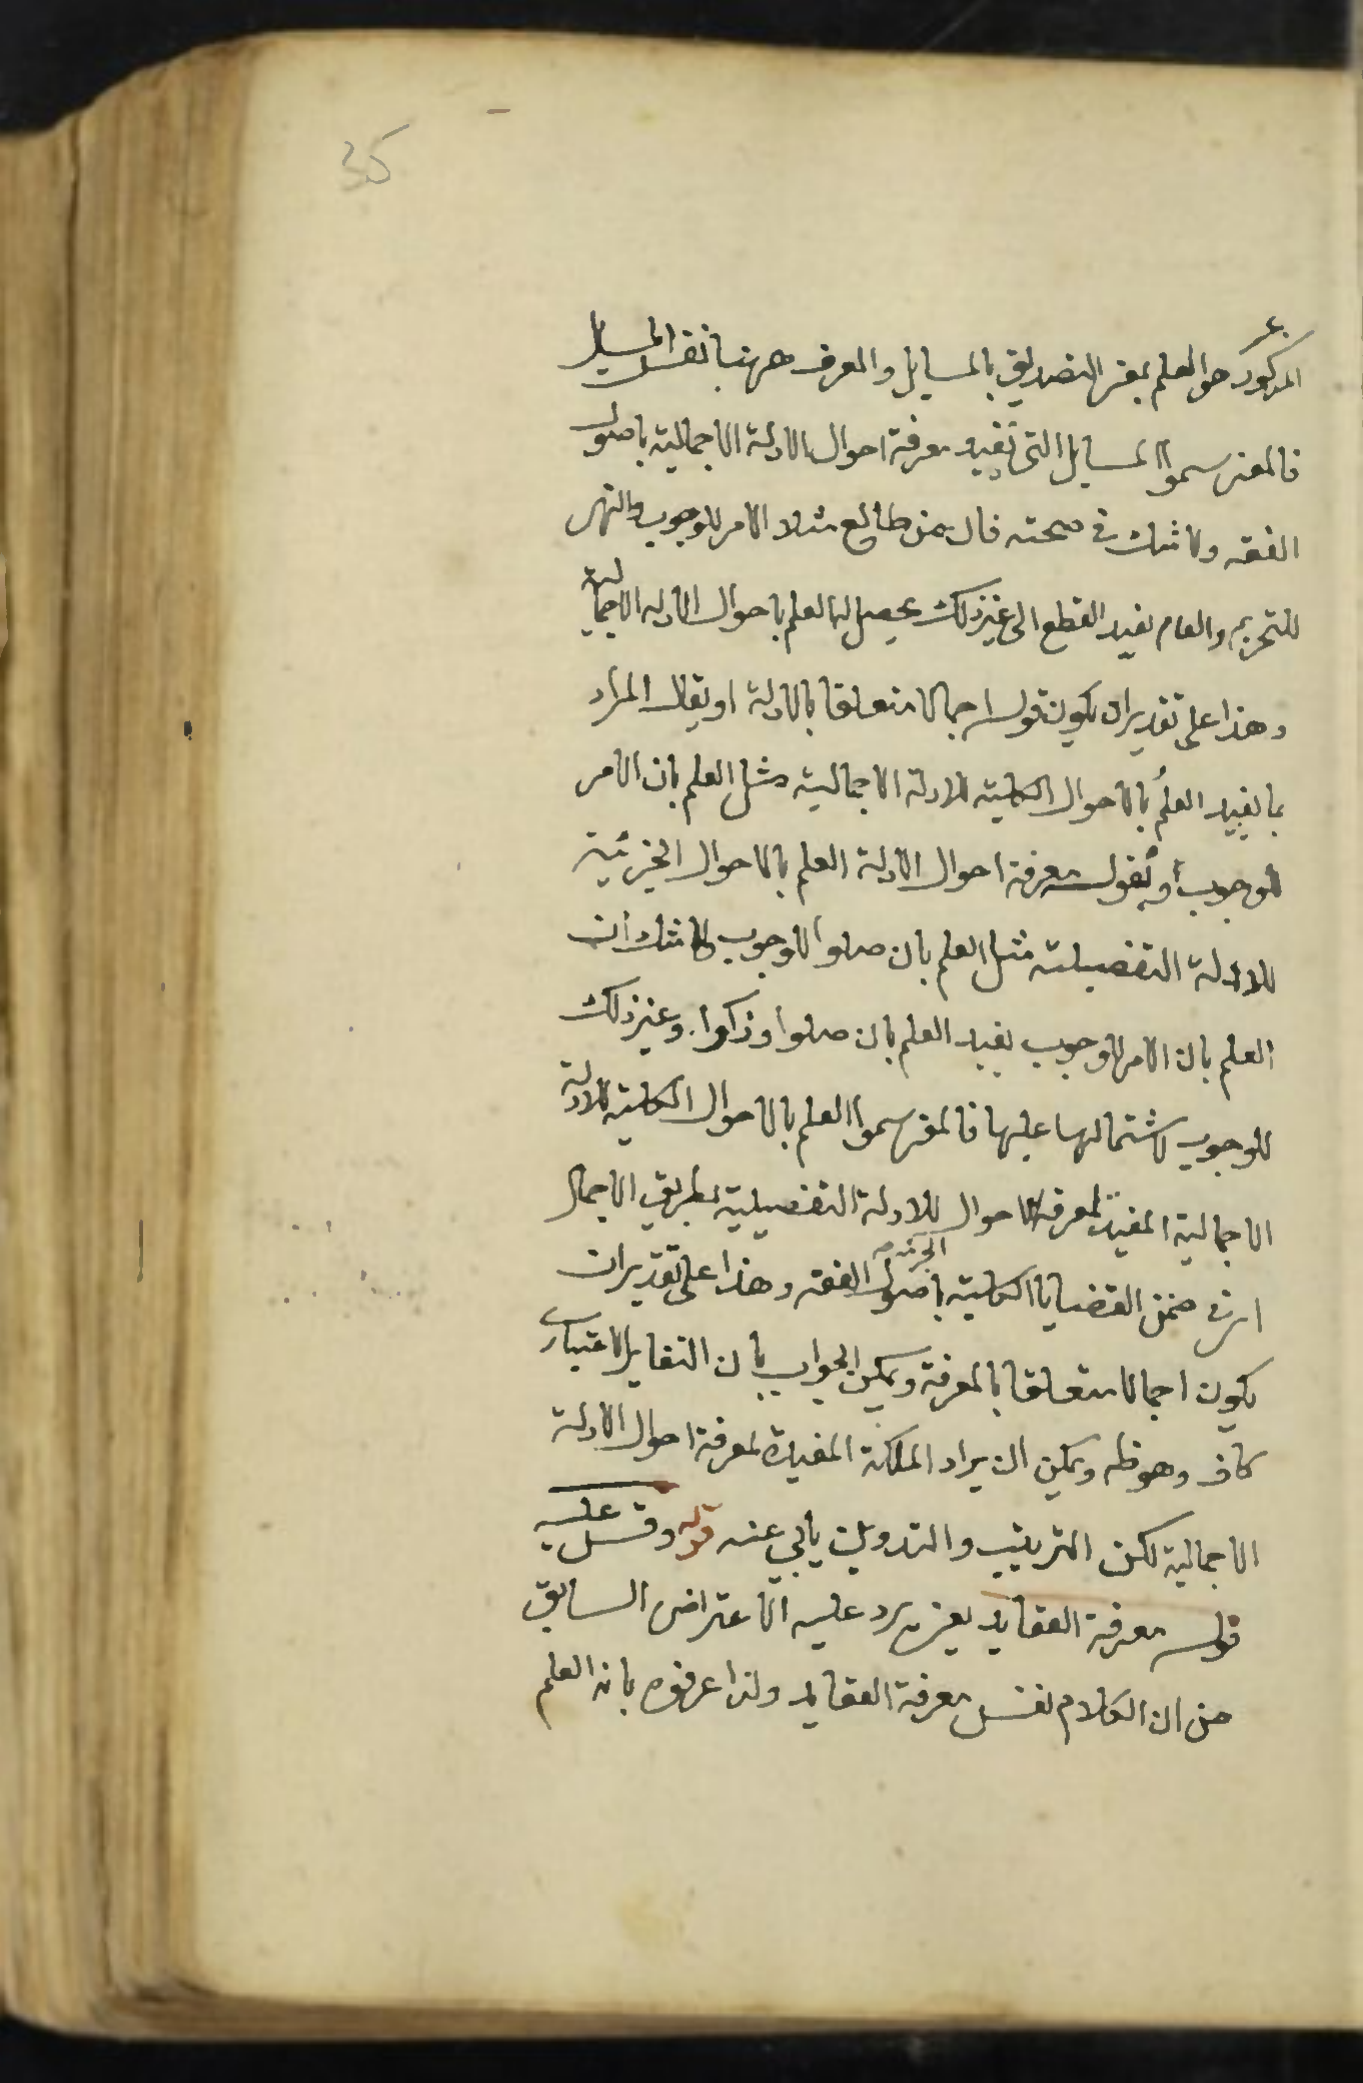 35
المذكور هو العلم بمعنى التصديق بالمسايل والمعرف ههنا نفس المسايل
فالمعنى سموا المسايل التى تفيد معرفة احوال الادلة الاجمالية باصول
الفقه ولا شك فى صحته فان من طالع مثلا الامر للوجوب والنهى
للتحريم والعام يفيد القطع الى غير ذلك يحصل له العلم باحوال الادلة الاجمالية
وهذا على تقدير ان يكون قوله اجمالا متعلقا بالادلة او يقال المراد
بما يفيد العلم بالاحوال الكلية للادلة الاجمالية مثل العلم بان الامر
للوجوب او نقول معرفة احوال الادلة العلم بالاحوال الجزئية
للادلة التفصيلية مثل العلم بان صلوا للوجوب ولا شك ان
العلم بان الامر للوجوب يفيد العلم بان صلوا وزكوا وغير ذلك
للوجوب لاشتمالها عليها فالمعنى سموا العلم بالاحوال الكلية للادلة
الاجمالية المفيد لمعرفة الاحوال الجزئية للادلة التفصيلية بطريق الاجمال
اى فى ضمن القضايا الكلية باصول الفقه وهذا على تقدير ان
يكون اجمالا متعلقا بالمعرفة ويمكن الجواب بان التغاير الاعتبارى
كاف وهو ظ ويمكن ان يراد الملكة المفيدة لمعرفة احوال الادلة
الاجمالية لكن الترتيب والتدوين يابى عنه قوله وقس عليه
قوله معرفة العقايد يعنى يرد عليه الاعتراض السابق
من ان الكلام نفس معرفة العقايد ولذا عرفوه بانه العلم